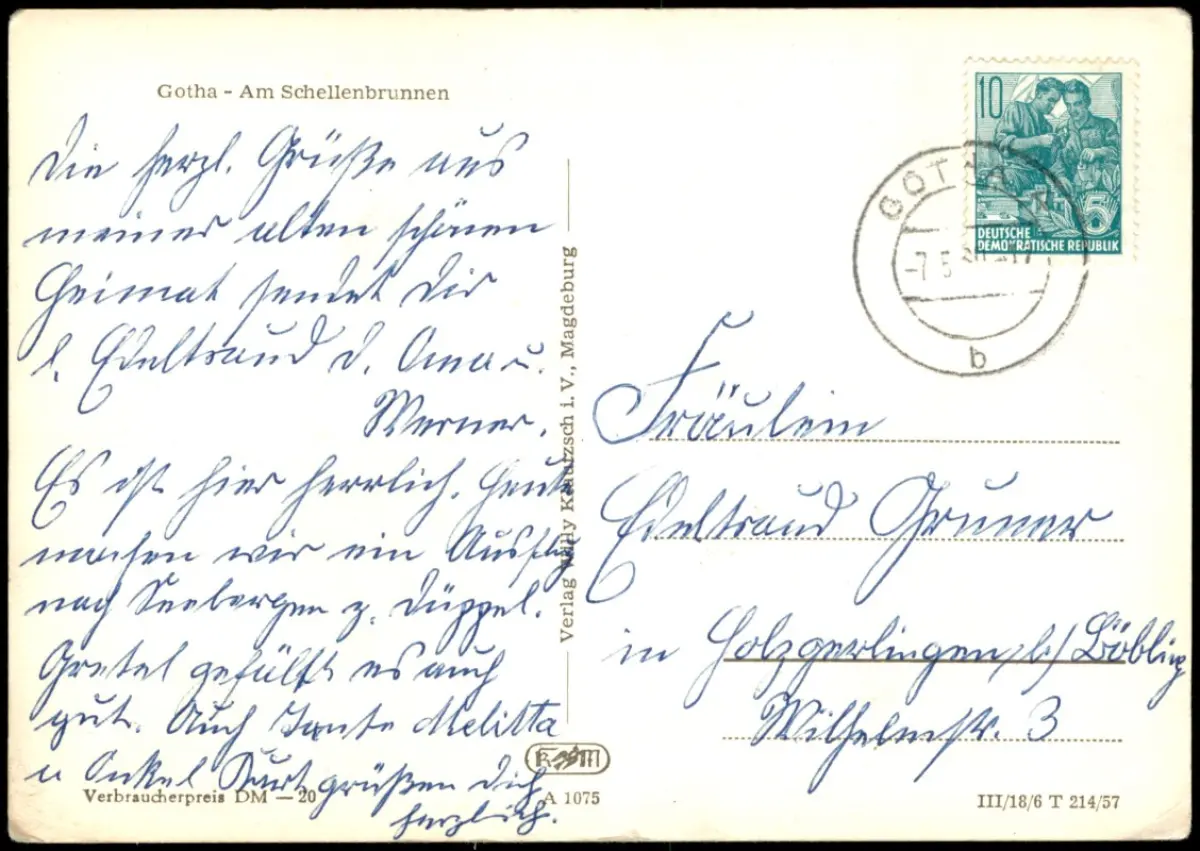 Gotha - Am Schellenbrunnen
Die herzl. Grüße aus
meiner alten schönen
Heimat sendet Dir
l. Edeltraud d. Oma u.
Werner.
Es ist hier herrlich. Heute
machen wir ein Ausflug
nach Seebergen z. Düppel.
Gretel gefällt es auch
gut. Auch Tante Melitta
u Onkel Kurt grüßen Dich
herzlich.
Verbraucherpreis DM — 20
A 1075
Verlag Willy Klautzsch i. V., Magdeburg
10
5
DEUTSCHE
DEMOKRATISCHE REPUBLIK
GOTHA
-7.5
b
Fräulein
Edeltraud Gruner
in Holzgerlingen, b/ Böbling
Wilhelmstr. 3
III/18/6 T 214/57